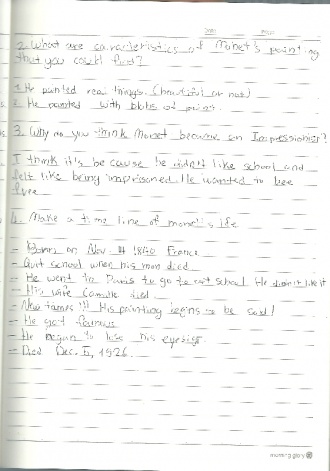 2. What are caracteristics of Monet's painting
that you could find?
1. He painted real things. (beautiful or not)
2. He painted with blobs of paint.
3. Why do you think Monet became an Impressionist?
I think it's be cause he didn't like school and
felt like being imprisoned. He wanted to bee
free
4. Make a time line of monet's life
- Born on Nov. 1840 France
- Quit school when his mom died
- He went to Paris to go to art school He didn't like it
- His wife Camille died
- New fames !!! His painting begins to be sold!
- He got famous
- He began to lose his eyesight
- Died Dec. 5, 1926
morning glory